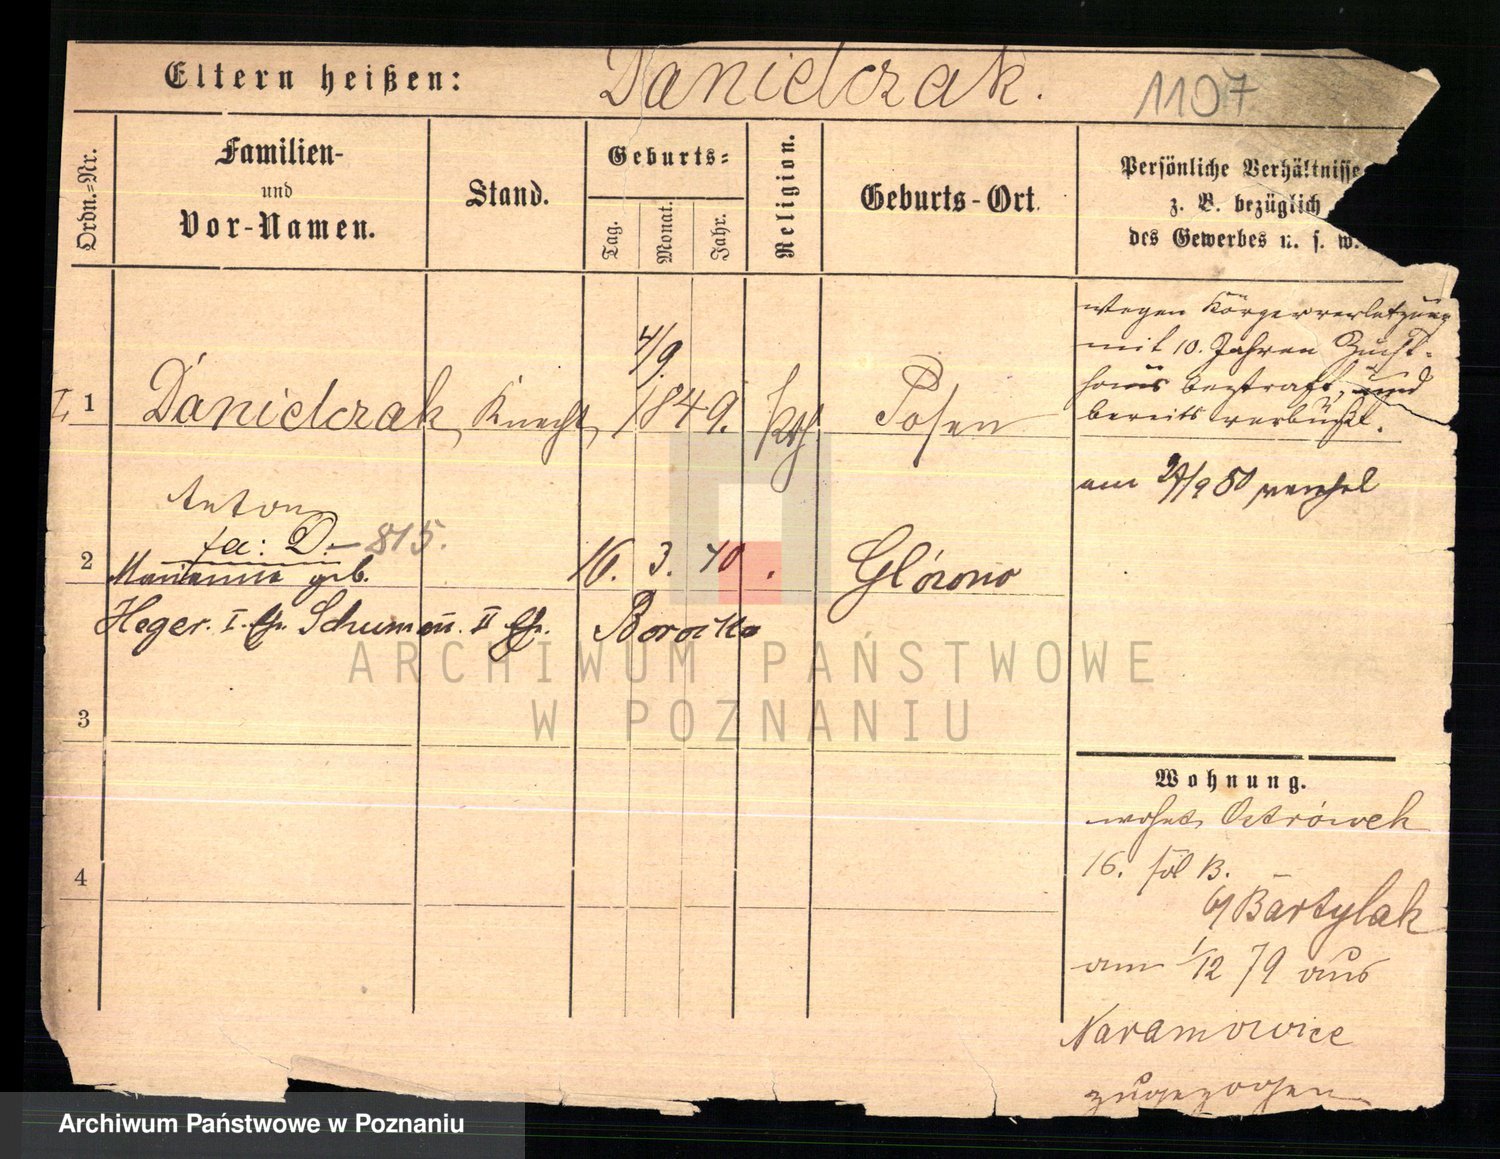 Eltern heißen: Danielczak. 1107
Ordn.=Nr.
Familien-
und
Vor-Namen.
Stand.
Geburts=
Tag.
Monat.
Jahr.
Religion.
Geburts-Ort.
Persönliche Verhältnisse
z. B. bezüglich
des Gewerbes u. s. w.
1 Danielczak, Knecht, 4/9. 1849. kth Posen
Anton
815.
2 Marianna geb. 16. 3. 40. Glówno
Heger. I. Schumann. II
3
4
wegen Körperverletzung
mit 10. Jahren Zucht-
haus bestraft, und
bereits verbüßt.
am
Wohnung.
wohnt Ostrówek
16. bei B.
Bartylak
am 1/12 79 aus
Naramowice
zugezogen
ARCHIWUM PAŃSTWOWE
W POZNANIU
Archiwum Państwowe w Poznaniu